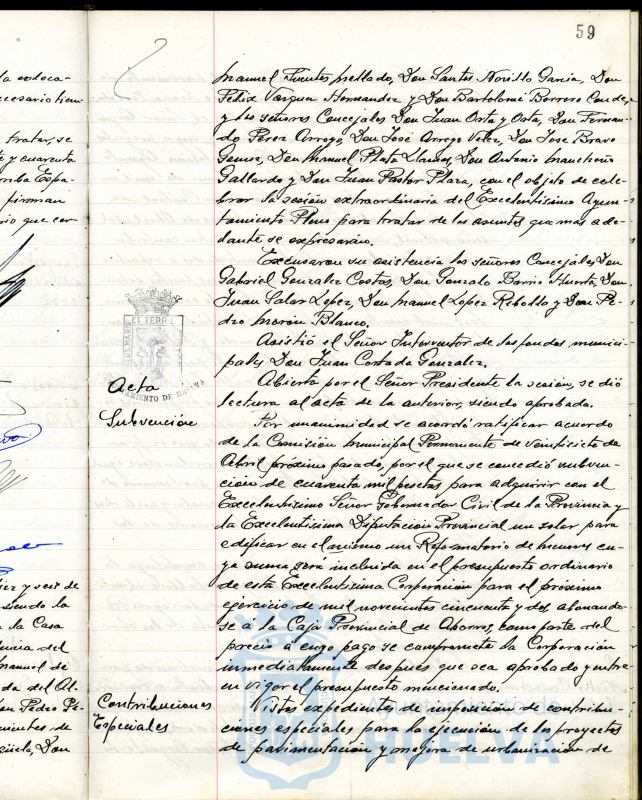 59
la coloca-
cesario tien
tratar, se
e y cuarenta
rriba Espa-
firman
rio que cer
diez y seis de
siendo la
la Casa
dencia del
Manuel de
da del Al-
on Pedro Pé-
nientes de
Don
Manuel Fuentes Mellado, Don Santos Norillo Garcia, Don
Felix Vazquez Hernandez y Don Bartolomé Borrero Conde,
y los señores Concejales Don Juan Orta y Orta, Don Fernan-
do Perez Arroyo, Don José Arroyo Velez, Don Jose Bravo
Don Manuel Plata Llanes, Don Antonio Mancheño
Gallardo y Don Juan Pastor Plaza, con el objeto de cele-
brar la sesión extraordinaria del Excelentisimo Ayun-
tamiento Pleno para tratar de los asuntos que mas ade-
lante se expresarán.
Excusaron su asistencia los señores Concejales Don
Gabriel Gonzalez Costas, Don Gonzalo Barrio Huerta, Don
Juan Salas Lopez, Don Manuel Lopez Rebollo y Don Pe-
dro Morón Blanco.
Asistió el Señor Interventor de los fondos munici-
pales Don Juan Cortada Gonzalez.
Acta
Abierta por el Señor Presidente la sesión, se dió
lectura al acta de la anterior, siendo aprobada.
Subvención
Por unanimidad se acordó ratificar acuerdo
de la Comisión Municipal Permanente de veintisiete de
Abril próximo pasado, por el que se concedió subven-
ción de cuarenta mil pesetas para adquirir con el
Excelentisimo Señor Gobernador Civil de la Provincia y
la Excelentisima Diputación Provincial un solar para
edificar en el mismo un Reformatorio de menores cu-
ya suma será incluida en el presupuesto ordinario
de esta Excelentisima Corporación para el próximo
ejercicio de mil novecientos cincuenta y dos abonando-
se á la Caja Provincial de Ahorros, como parte del
precio á cuyo pago se compromete la Corporación
inmediatamente después que sea aprobado y entre
en vigor el presupuesto mencionado.
Contribuciones
Especiales
Vistos expedientes de imposición de contribu-
ciones especiales para la ejecución de los proyectos
de pavimentación y mejora de urbanización de
AYUNTAMIENTO DE
HUELVA